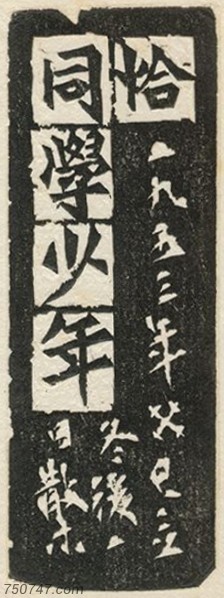 恰
同學少年
一九五三年癸巳立
冬後一
日散木
750747.com